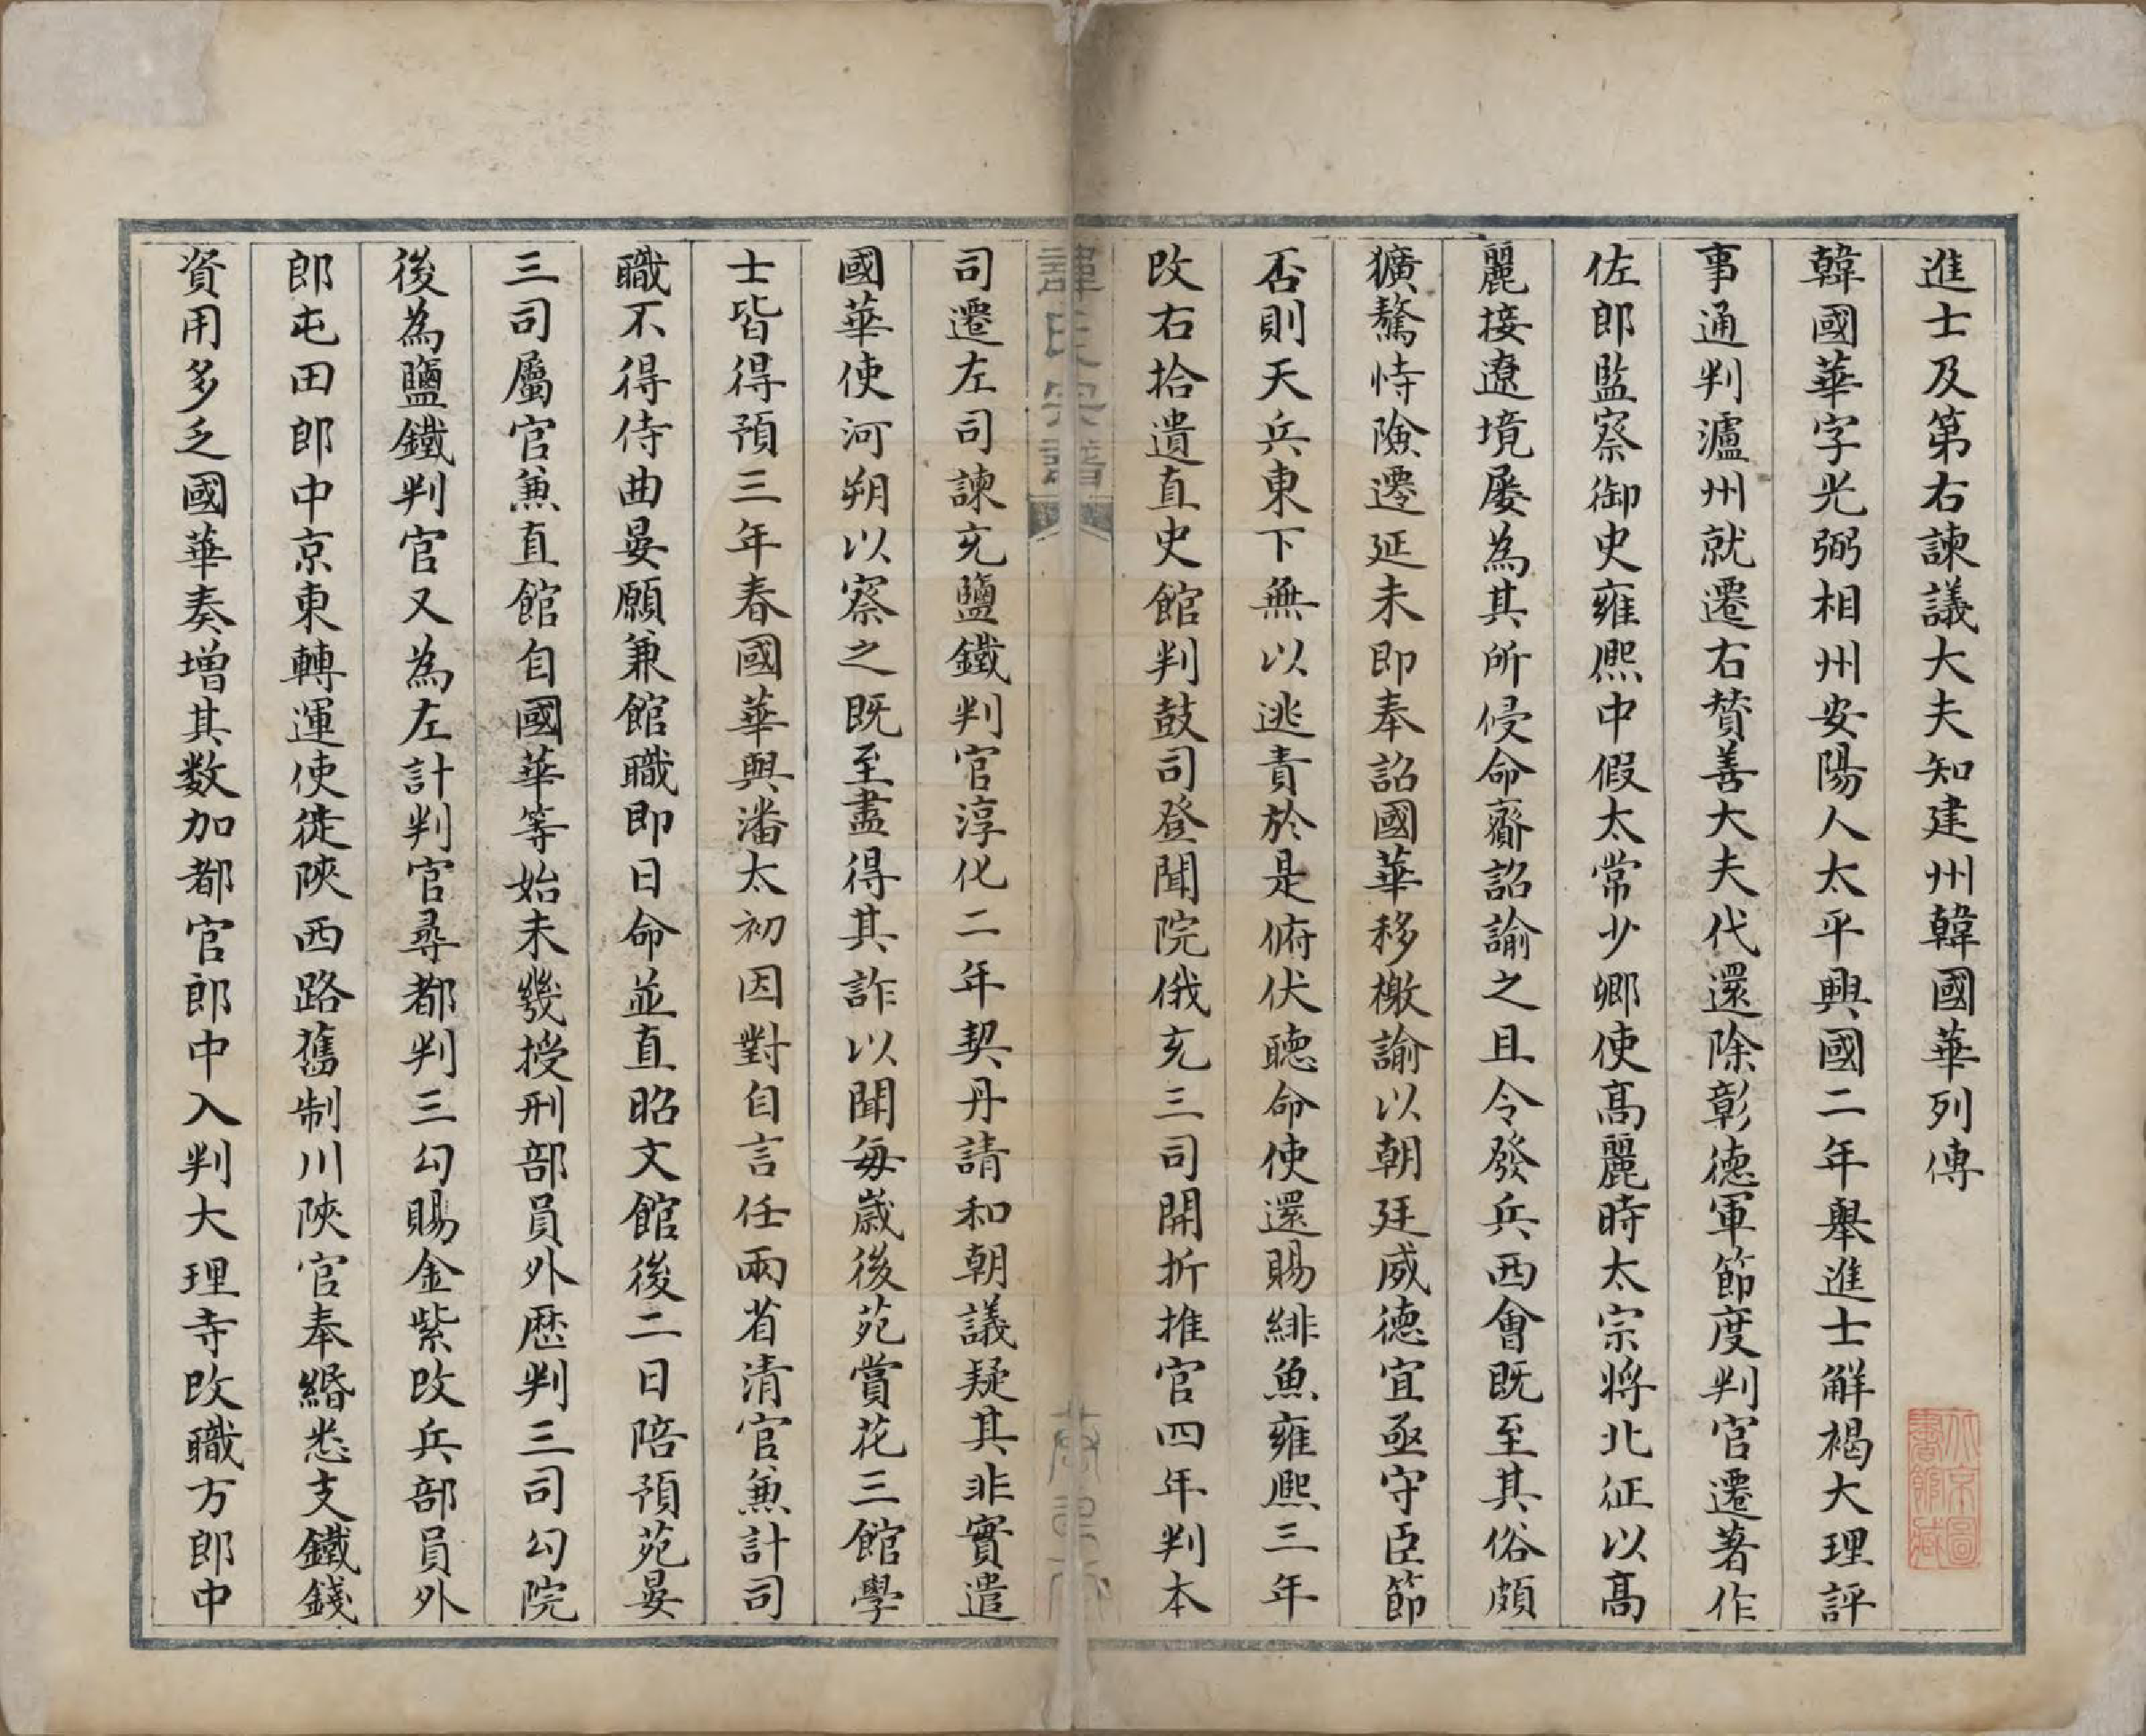 進士及第右諫議大夫知建州韓國華列傳
韓國華字光弼相州安陽人太平興國二年舉進士解褐大理評
事通判瀘州就遷右贊善大夫代還除彰德軍節度判官遷著作
佐郎監察御史雍熙中假太常少卿使高麗時太宗將北征以高
麗接遼境屡為其所侵命齎詔諭之且令發兵西會既至其俗頗
獷驁恃險遷延未即奉詔國華移檄諭以朝廷威德宜亟守臣節
否則天兵東下無以逃責於是俯伏聽命使還賜緋魚雍熙三年
改右拾遺直史館判鼓司登聞院俄充三司開折推官四年判本
韓氏宗譜
司遷左司諫充鹽鐵判官淳化二年契丹請和朝議疑其非實遣
國華使河朔以察之既至盡得其詐以聞每歲後苑賞花三館學
士皆得預三年春國華與潘太初因對自言任兩省清官兼計司
職不得侍曲晏願兼館職即日命並直昭文館後二日陪預苑晏
三司屬官兼直館自國華等始未幾授刑部員外歷判三司勾院
後為鹽鐵判官又為左計判官尋都判三勾賜金紫改兵部員外
郎屯田郎中京東轉運使徙陝西路舊制川陝官奉緡悉支鐵錢
資用多乏國華奏增其数加都官郎中入判大理寺改職方郎中